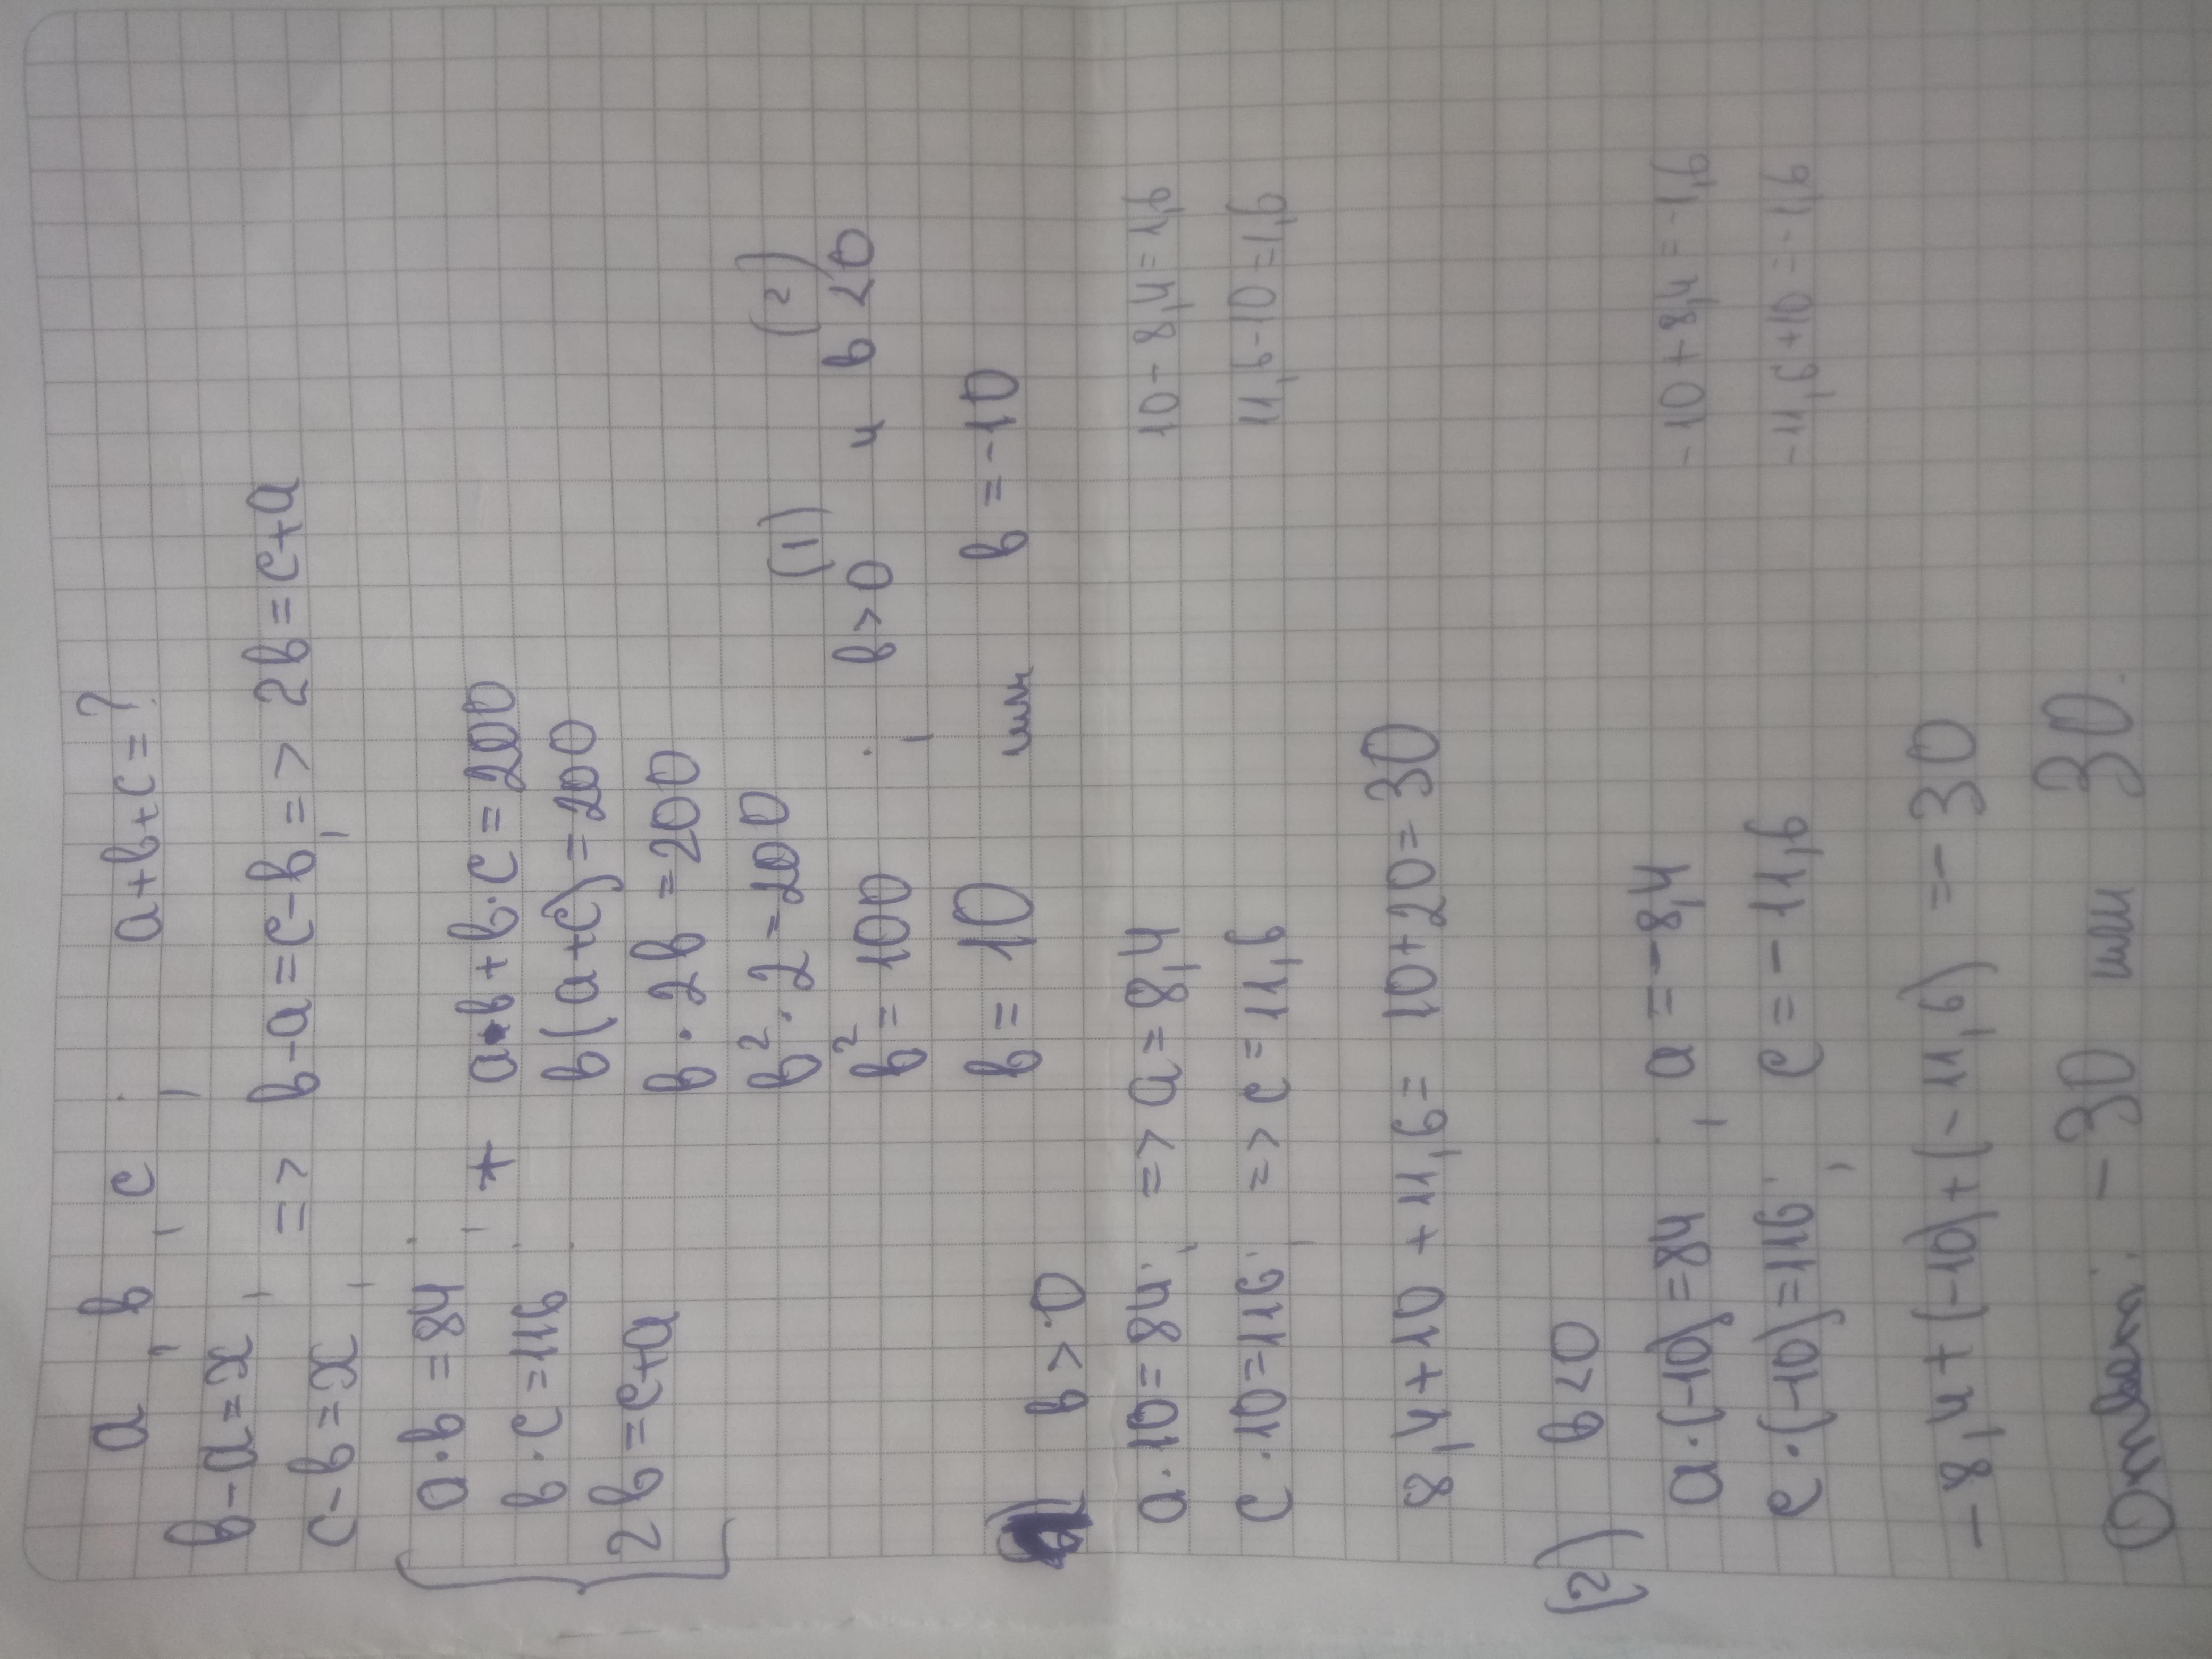 a, b, c; a+b+c=?
b-a=x;
c-b=x; => b-a=c-b, => 2b=c+a
a·b=84;
b·c=116; + a·b+b·c=200
2b=c+a b(a+c)=200
b·2b=200
b²·2=200
b²=100; b>0 (1) и b<0 (2)
b=10 или b=-10
b>0
a·10=84; => a=8,4 10-8,4=1,6
c·10=116; => c=11,6 11,6-10=1,6
8,4+10+11,6=10+20=30
(2) b<0
a·(-10)=84; a=-8,4 -10+8,4=-1,6
c·(-10)=116; c=-11,6 -11,6+10=-1,6
-8,4+(-10)+(-11,6)=-30
Ответ: -30 или 30.